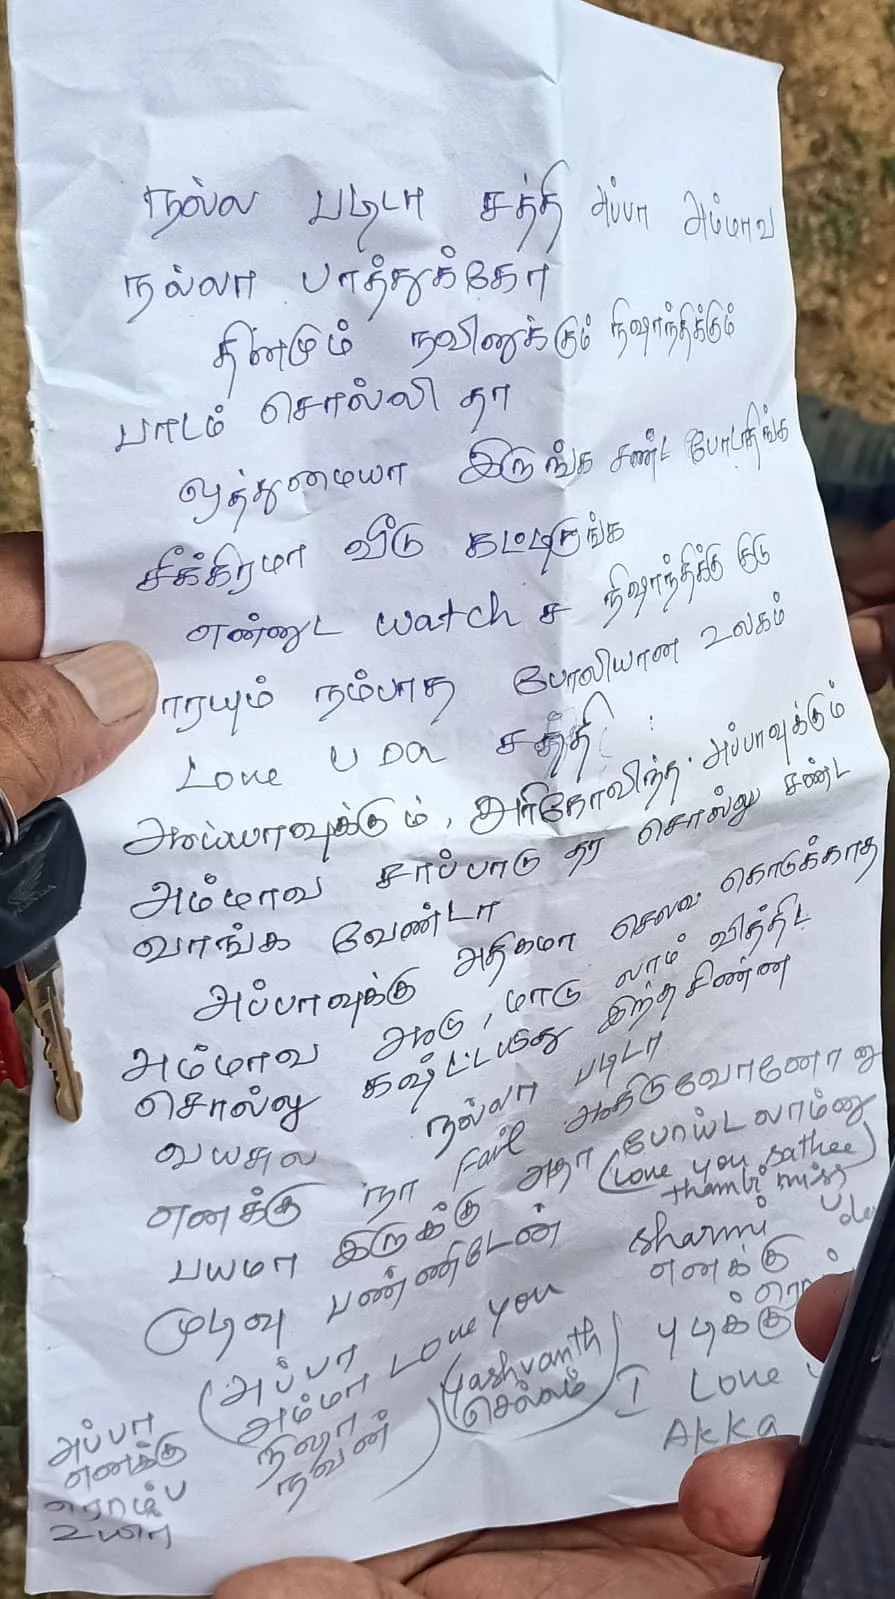 நல்ல படிடா சத்தி அப்பா அம்மாவ
நல்லா பாத்துக்கோ
தினமும் நவினுக்கும் நிஷாந்திக்கும்
பாடம் சொல்லி தா
ஒத்துமையா இருங்க சண்ட போடாதிங்க
சீக்கிரமா வீடு கட்டிகுங்க
என்னுட watch ச நிஷாந்திக்கு குடு
ாரயும் நம்பாத போலியான உலகம்
Love U Da சத்தி
அரிகோவிந்த அப்பாவுக்கும்
அம்மாவ சாப்பாடு தர சொல்லு சண்ட
வாங்க வேண்டா
அப்பாவுக்கு அதிகமா செலவ கொடுக்காத
அம்மாவ ஆடு, மாடு லாம் வித்திட
சொல்லு கஷ்ட்டபடுது இந்த சின்ன
வயசுல நல்லா படிடா
எனக்கு நா Fail ஆகிடுவோனோ னு
பயமா இருக்கு அதா போய்டலாம்னு
முடிவு பண்ணிடேன்
(Love you Sathee)
thambi miss
Sharmi
எனக்கு
புடிக்கு
I Love
Akka
(அப்பா
அம்மா Love you
நிஷா
நவன்)
(Yashvanth
செல்லம்)
அப்பா
எனக்கு
ரொம்ப